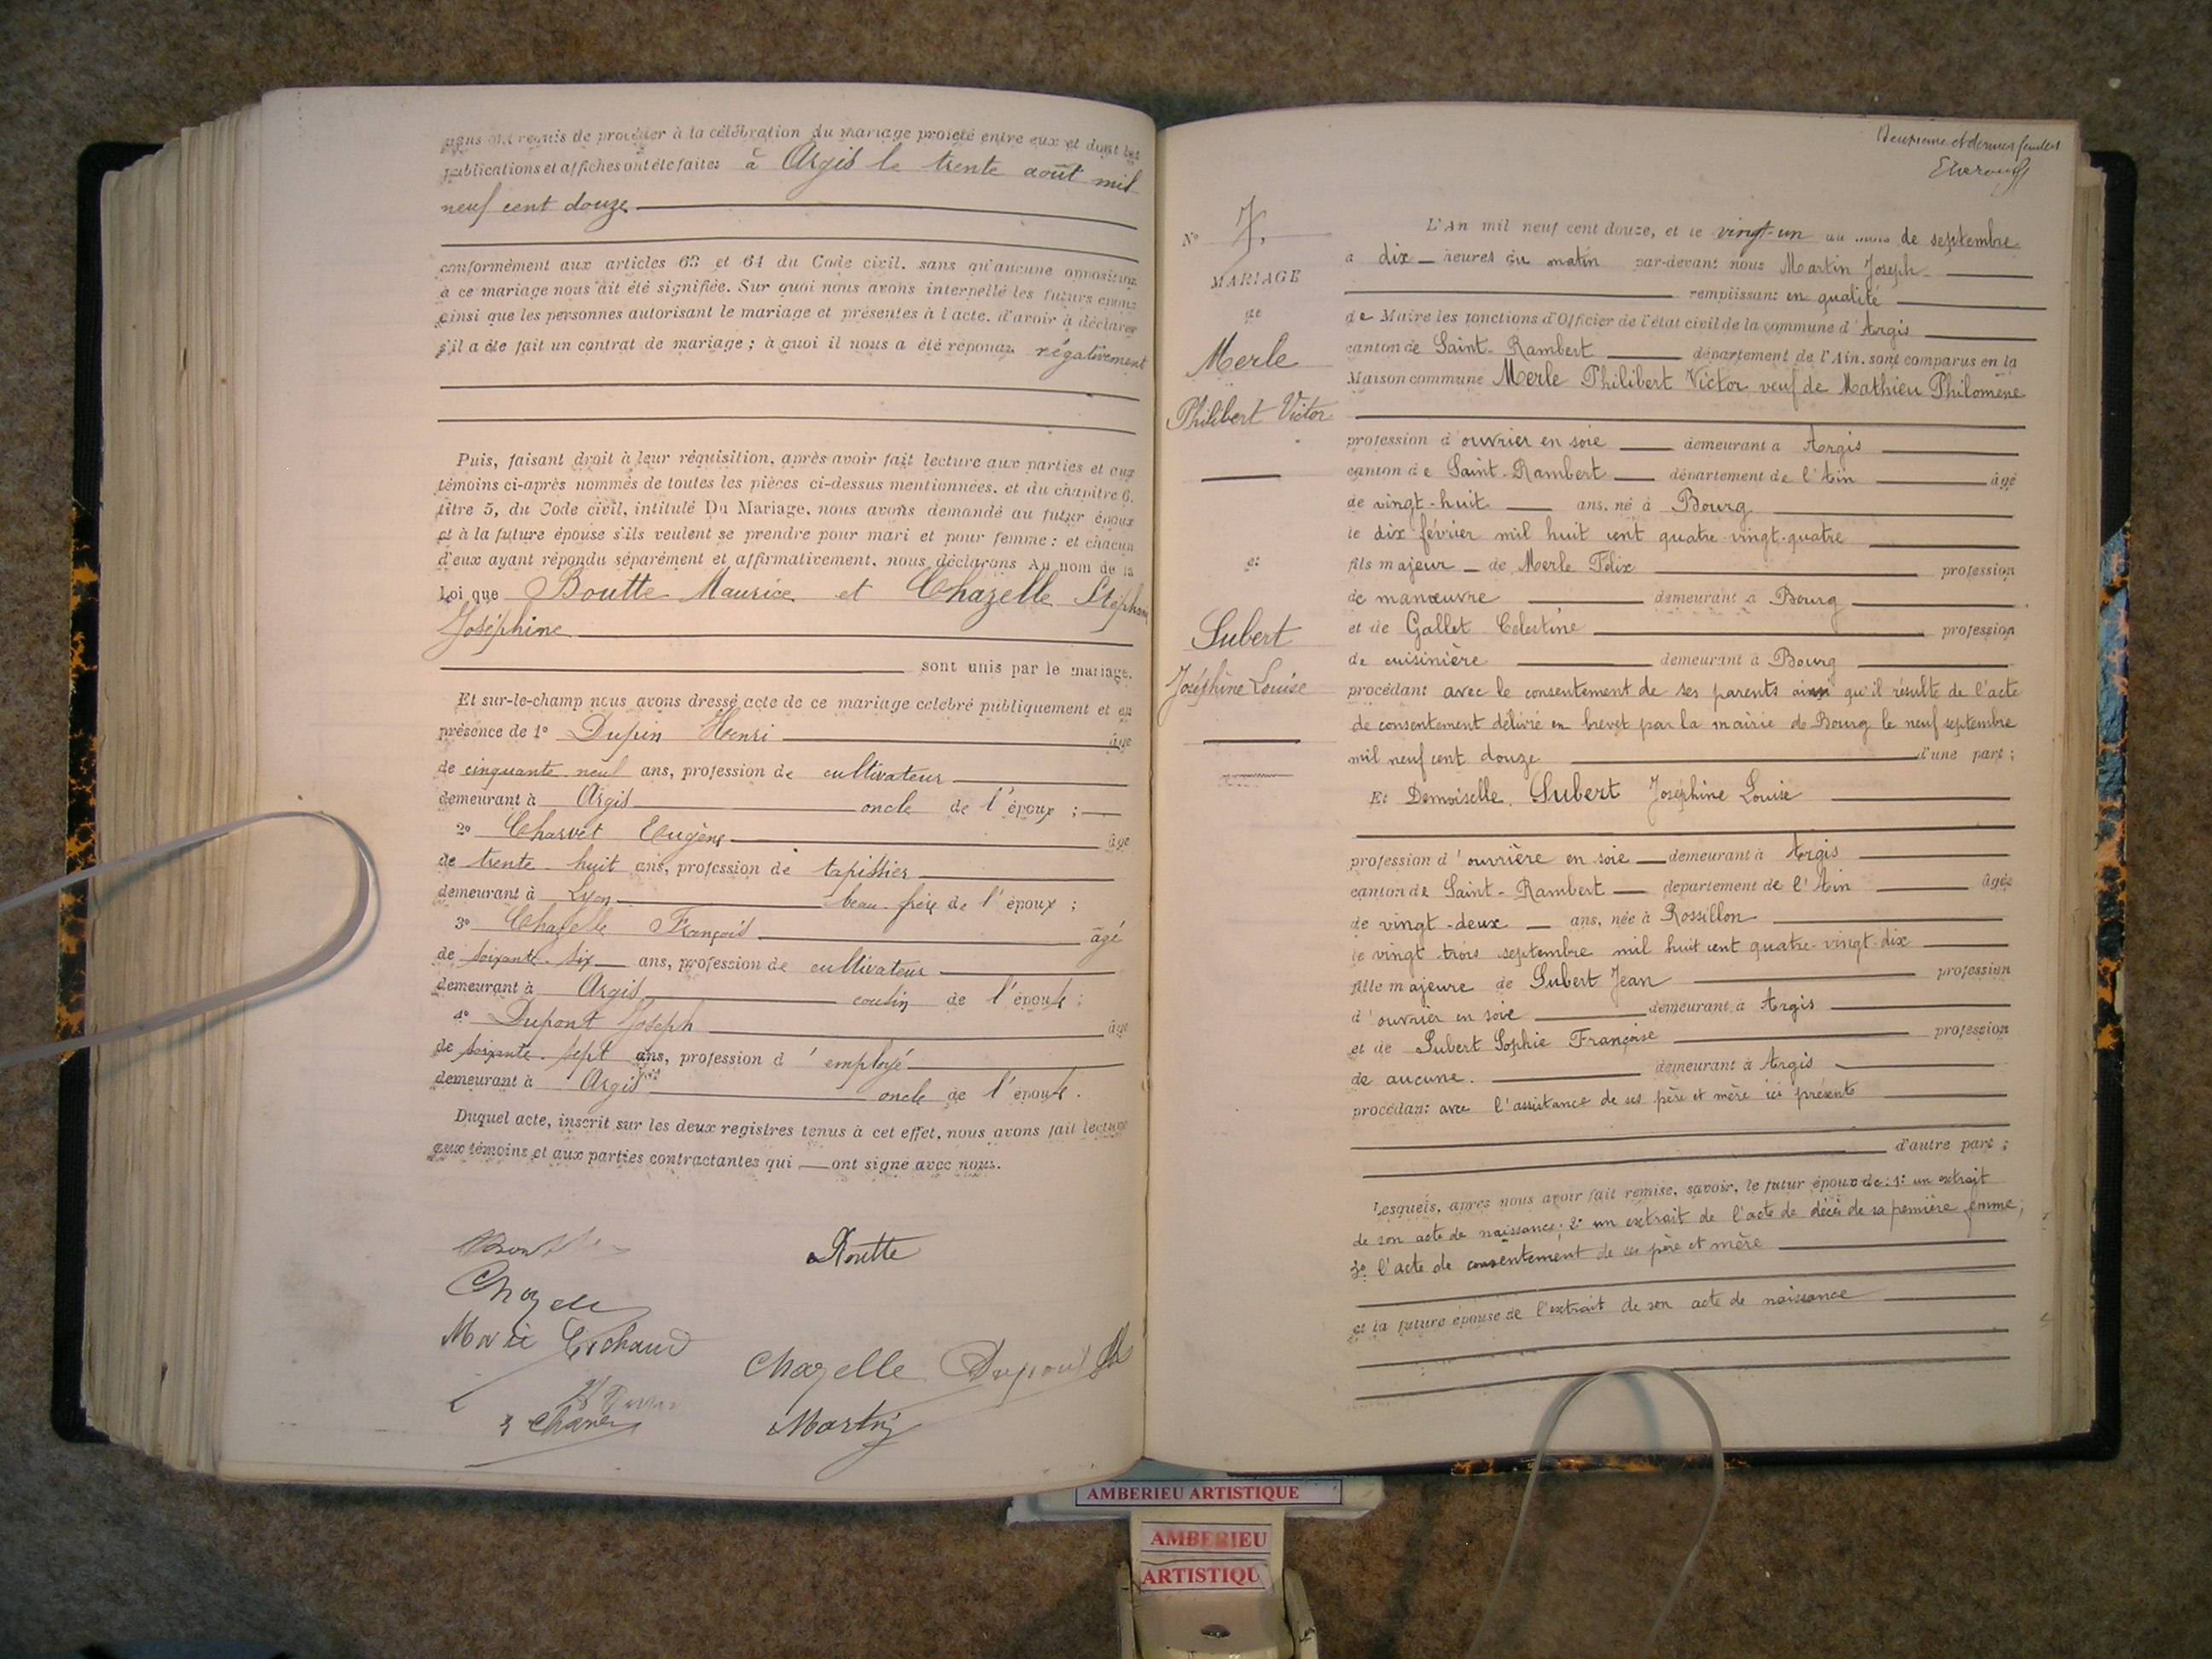 nous ont requis de procéder à la célébration du mariage projeté entre eux et dont les
publications et affiches ont été faites à Argis le trente août mil
neuf cent douze
conformément aux articles 63 et 64 du Code civil, sans qu'aucune opposition
à ce mariage nous ait été signifiée. Sur quoi nous avons interpellé les futurs époux
ainsi que les personnes autorisant le mariage et présentes à l'acte, d'avoir à déclarer
s'il a été fait un contrat de mariage ; à quoi il nous a été répondu négativement
Puis, faisant droit à leur réquisition, après avoir fait lecture aux parties et aux
témoins ci-après nommés de toutes les pièces ci-dessus mentionnées, et du chapitre 6,
titre 5, du Code civil, intitulé Du Mariage, nous avons demandé au futur époux
et à la future épouse s'ils veulent se prendre pour mari et pour femme : et chacun
d'eux ayant répondu séparément et affirmativement, nous déclarons Au nom de la
Loi que Boutte Maurice et Chazelle Stéphanie
Joséphine
sont unis par le mariage.
Et sur-le-champ nous avons dressé acte de ce mariage célébré publiquement et en
présence de 1° Dupin Henri âgé
de cinquante neuf ans, profession de cultivateur
demeurant à Argis oncle de l'époux ;
2° Charvet Eugène âgé
de trente huit ans, profession de tapissier
demeurant à Lyon beau-frère de l'époux ;
3° Chazelle François âgé
de soixante-six ans, profession de cultivateur
demeurant à Argis cousin de l'épouse ;
4° Dupont Joseph âgé
de soixante-sept ans, profession d'employé
demeurant à Argis oncle de l'épouse.
Duquel acte, inscrit sur les deux registres tenus à cet effet, nous avons fait lecture
aux témoins et aux parties contractantes qui ont signé avec nous.
Boutte
Chazelle
Marie
Chazelle Dupont
Martin
Deuxième et dernier feuillet
N° 7.
MARIAGE
de
Merle
Philibert Victor
et
Subert
Joséphine Louise
L'An mil neuf cent douze, et le vingt-un du mois de septembre
à dix heures du matin par-devant nous Martin Joseph
remplissant en qualité
de Maire les fonctions d'Officier de l'état civil de la commune d'Argis
canton de Saint-Rambert département de l'Ain, sont comparus en la
Maison commune Merle Philibert Victor veuf de Mathieu Philomène
profession d'ouvrier en soie demeurant à Argis
canton de Saint-Rambert département de l'Ain âgé
de vingt-huit ans, né à Bourg
le dix février mil huit cent quatre-vingt-quatre
fils majeur de Merle Félix profession
de manœuvre demeurant à Bourg
et de Gallet Célestine profession
de cuisinière demeurant à Bourg
procédant avec le consentement de ses parents ainsi qu'il résulte de l'acte
de consentement délivré en brevet par la mairie de Bourg le neuf septembre
mil neuf cent douze d'une part ;
Et Demoiselle Subert Joséphine Louise
profession d'ouvrière en soie demeurant à Argis
canton de Saint-Rambert département de l'Ain âgée
de vingt-deux ans, née à Rossillon
le vingt trois septembre mil huit cent quatre-vingt-dix
fille majeure de Subert Jean profession
d'ouvrier en soie demeurant à Argis
et de Subert Sophie Françoise profession
de aucune. demeurant à Argis
procédant avec l'assistance de ses père et mère ici présents
d'autre part ;
Lesquels, après nous avoir fait remise, savoir, le futur époux de : 1° un extrait
de son acte de naissance ; 2° un extrait de l'acte de décès de sa première femme ;
3° l'acte de consentement de ses père et mère
et la future épouse de l'extrait de son acte de naissance
AMBERIEU ARTISTIQUE
AMBERIEU
ARTISTIQU